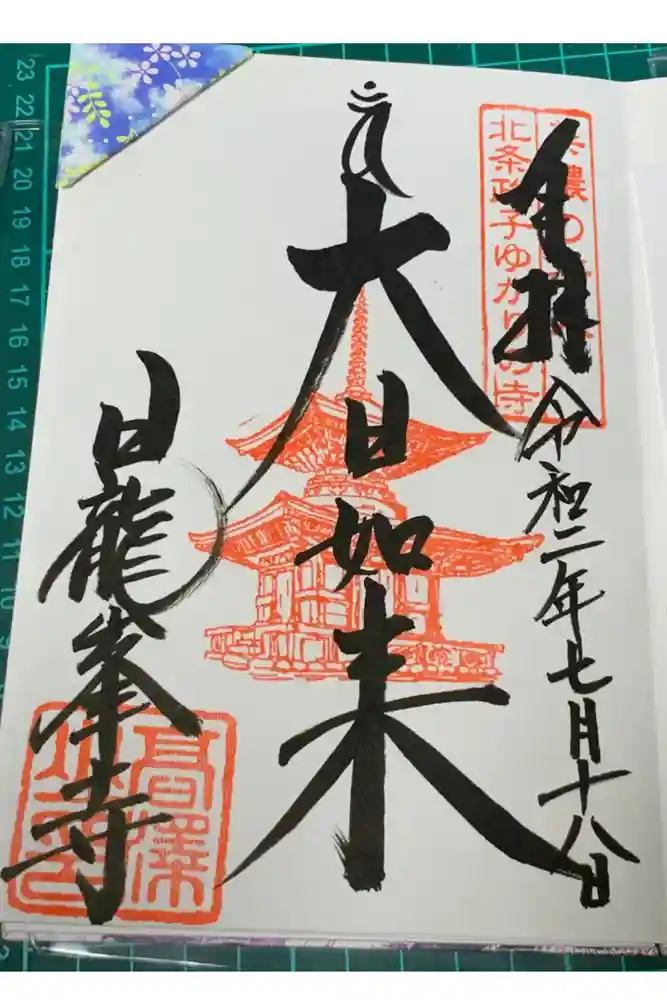 奉拝
令和二年七月十八日
美濃の清水
北条政子ゆかりの寺
大日如来
日龍峯寺
高澤
23 22 21 20 19 18 17 16 15 14 13 12 11 10 9